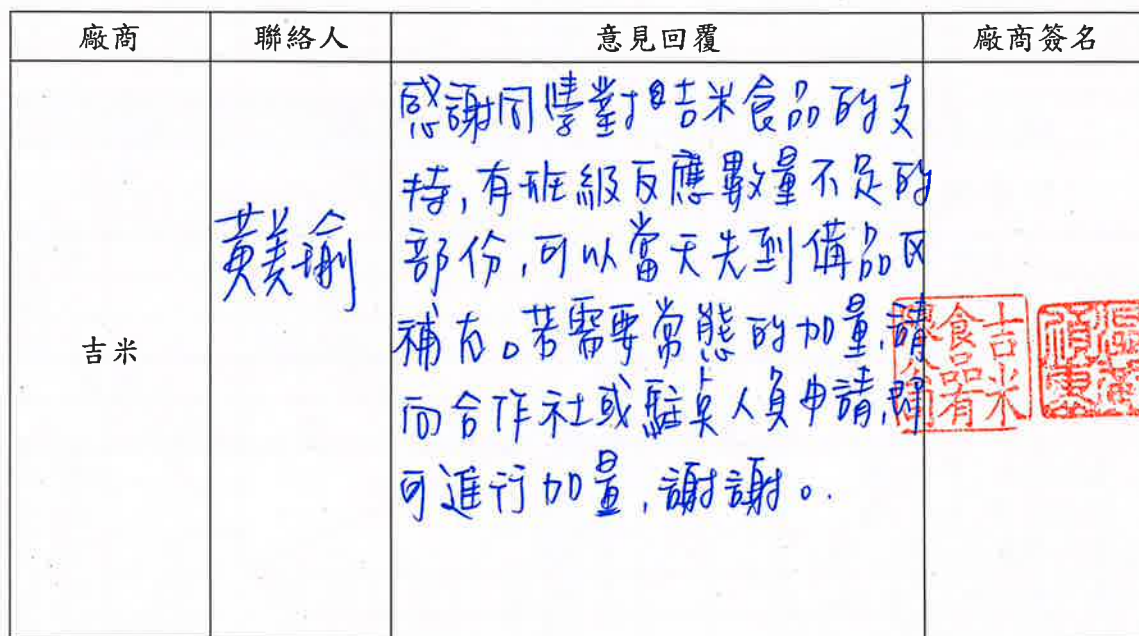 廠商 聯絡人 意見回覆 廠商簽名
吉米
黃美瑜
感謝同學對吉米食品的支
持,有班級反應數量不足的
部份,可以當天先到備品區
補充。若需要常態的加量,請
向合作社或駐點人員申請,即
可進行加量,謝謝。
吉米
食品有
限公司